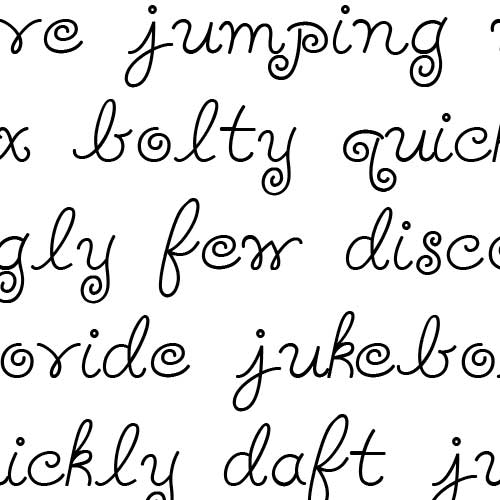 ve jumping
x bolty quick
gly few disco
ovide jukebo
ickly daft ju